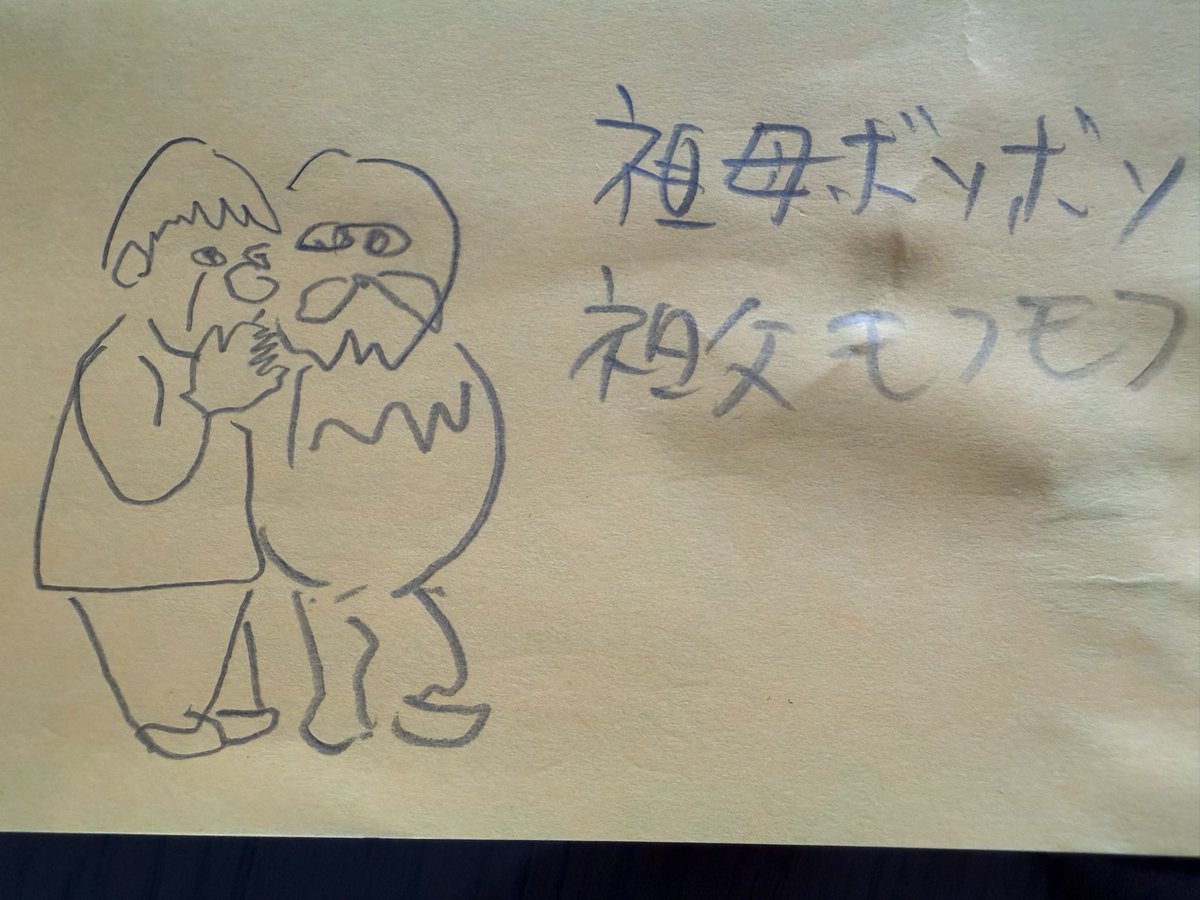 祖母ボソボソ
祖父モフモフ